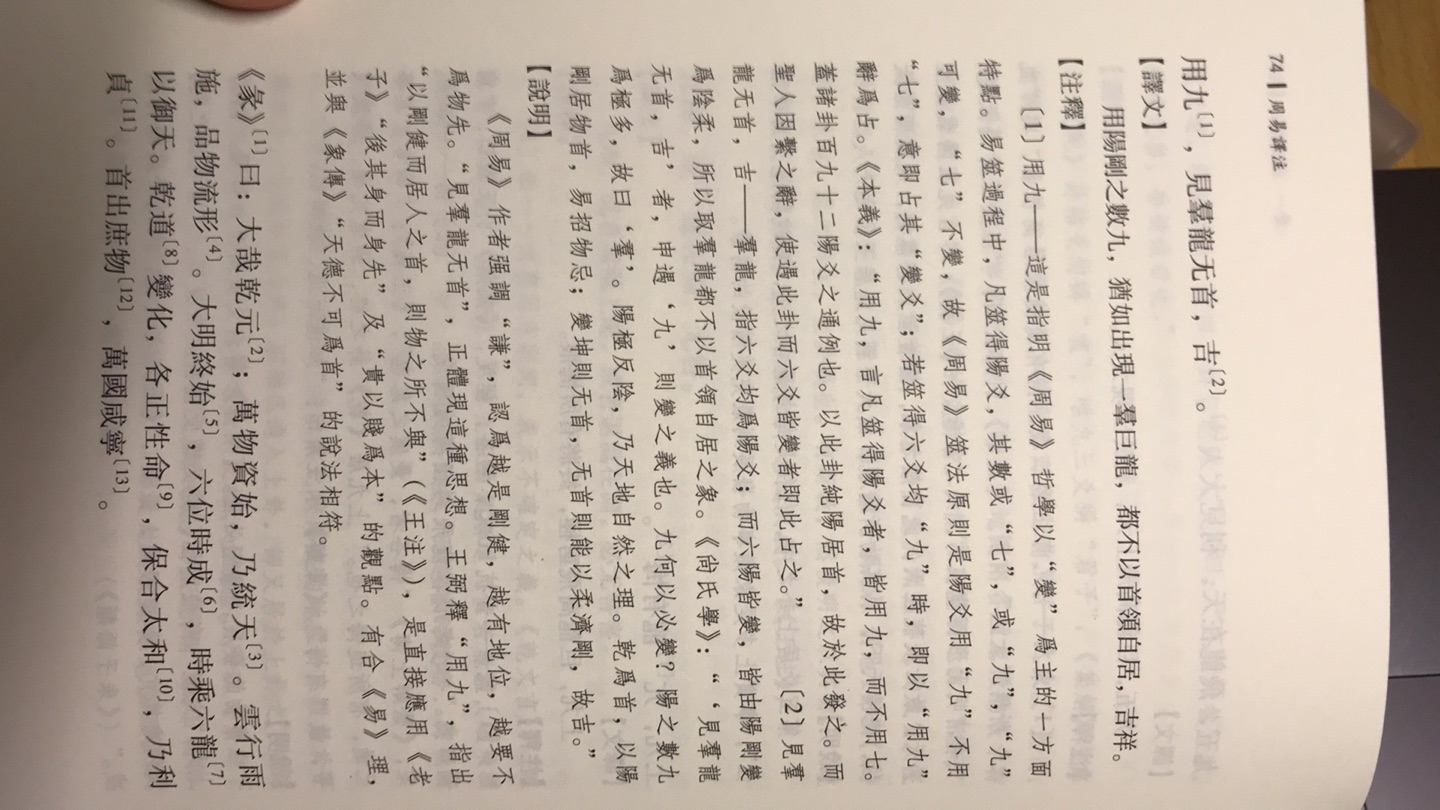 74 周易譯注
用九〔1〕，見羣龍无首，吉〔2〕。
【譯文】
用陽剛之數九，猶如出現一羣巨龍，都不以首領自居，吉祥。
【注釋】
〔1〕用九——這是指明《周易》哲學以“變”爲主的一方面
特點。易筮過程中，凡筮得陽爻，其數或“七”，或“九”，“九”
可變，“七”不變，故《周易》筮法原則是陽爻用“九”不用
“七”，意即占其“變爻”；若筮得六爻均“九”時，即以“用九”
辭爲占。《本義》：“用九，言凡筮得陽爻者，皆用九，而不用七。
蓋諸卦百九十二陽爻之通例也。以此卦純陽居首，故於此發之。而
聖人因繫之辭，使遇此卦而六爻皆變者即此占之。”〔2〕見羣
龍无首，吉——羣龍，指六爻均爲陽爻；而六陽皆變，皆由陽剛變
爲陰柔，所以取羣龍都不以首領自居之象。《尚氏學》：“‘見羣龍
无首，吉’者，申遇‘九’則變之義也。九何以必變？陽之數九
爲極多，故曰‘羣’。陽極反陰，乃天地自然之理。乾爲首，以陽
剛居物首，易招物忌；變坤則无首，无首則能以柔濟剛，故吉。”
【說明】
《周易》作者强調“謙”，認爲越是剛健，越有地位，越要不
爲物先。“見羣龍无首”，正體現這種思想。王弼釋“用九”，指出
“以剛健而居人之首，則物之所不與”（《王注》），是直接應用《老
子》“後其身而身先”及“貴以賤爲本”的觀點。有合《易》理，
並與《象傳》“天德不可爲首”的說法相符。
《彖》〔1〕曰：大哉乾元〔2〕；萬物資始，乃統天〔3〕。雲行雨
施，品物流形〔4〕。大明終始〔5〕，六位時成〔6〕，時乘六龍〔7〕
以御天。乾道〔8〕變化，各正性命〔9〕，保合太和〔10〕，乃利
貞〔11〕。首出庶物〔12〕，萬國咸寧〔13〕。